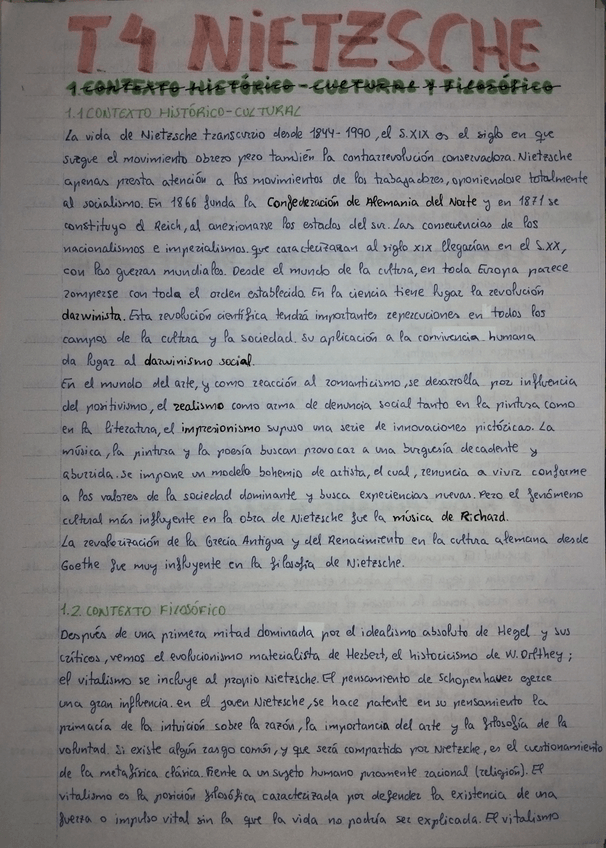 T.4 NIETZSCHE
1. CONTEXTO HISTÓRICO-CULTURAL Y FILOSÓFICO
1.1 CONTEXTO HISTÓRICO-CULTURAL
La vida de Nietzsche transcurrio desde 1844-1990, el S.XIX es el siglo en que
surgue el movimiento obrero pero también la contrarrevolución conservadora. Nietzsche
apenas presta atención a los movimientos de los trabajadores, oponiendose totalmente
al socialismo. En 1866 funda la Confederación de Alemania del Norte y en 1871 se
constituyo el Reich, al anexionarse los estados del sur. Las consecuencias de los
nacionalismos e imperialismos que caracterizaran al siglo XIX llegarían en el S.XX,
con las guerras mundiales. Desde el mundo de la cultura, en toda Europa parece
romperse con toda el orden establecido. En la ciencia tiene lugar la revolución
darwinista. Esta revolución científica tendrá importantes repercuciones en todos los
campos de la cultura y la sociedad. Su aplicación a la convivencia humana
da lugar al darwinismo social.
En el mundo del arte, y como reacción al romanticismo, se desarrolla por influencia
del positivismo, el realismo como arma de denuncia social tanto en la pintura como
en la literatura, el impresionismo supuso una serie de innovaciones pictóricas. La
música, la pintura y la poesía buscan provocar a una burguesía decadente y
aburrida. Se impone un modelo bohemio de artista, el cual, renuncia a vivir conforme
a los valores de la sociedad dominante y busca experiencias nuevas. Pero el fenómeno
cultural más influyente en la obra de Nietzsche fue la música de Richard.
La revalorización de la Grecia Antigua y del Renacimiento en la cultura alemana desde
Goethe fue muy influyente en la filosofía de Nietzsche.
1.2 CONTEXTO FILOSÓFICO
Después de una primera mitad dominada por el idealismo absoluto de Hegel y sus
críticos, vemos el evolucionismo materialista de Herbert, el historicismo de W. Dilthey;
el vitalismo se incluye al propio Nietzsche. El pensamiento de Schopenhauer ejerce
una gran influencia en el joven Nietzsche, se hace patente en su pensamiento la
primacía de la intuición sobre la razón, la importancia del arte y la filosofía de la
voluntad. Si existe algún rasgo común, y que será compartido por Nietzche, es el cuestionamiento
de la metafísica clásica. Frente a un sujeto humano puramente racional (religión). El
vitalismo es la posición filosófica caracterizada por defender la existencia de una
fuerza o impulso vital sin la que la vida no podría ser explicada. El vitalismo